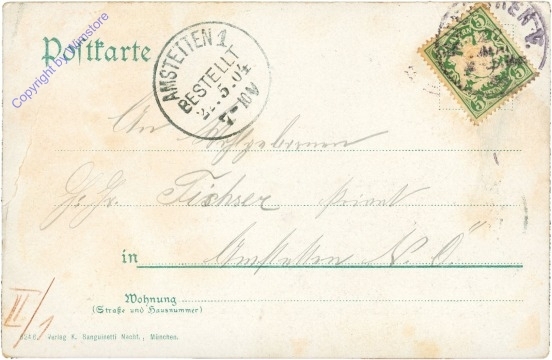 Copyright by Aimstore
Postkarte
AMSTETTEN 1
BESTELLT
5 04
5
5
An
Fischer Privat
in Amstetten N.Ö.
Wohnung
(Straße und Hausnummer)
II/1
Verlag K. Sanguinetti Nachf., München.